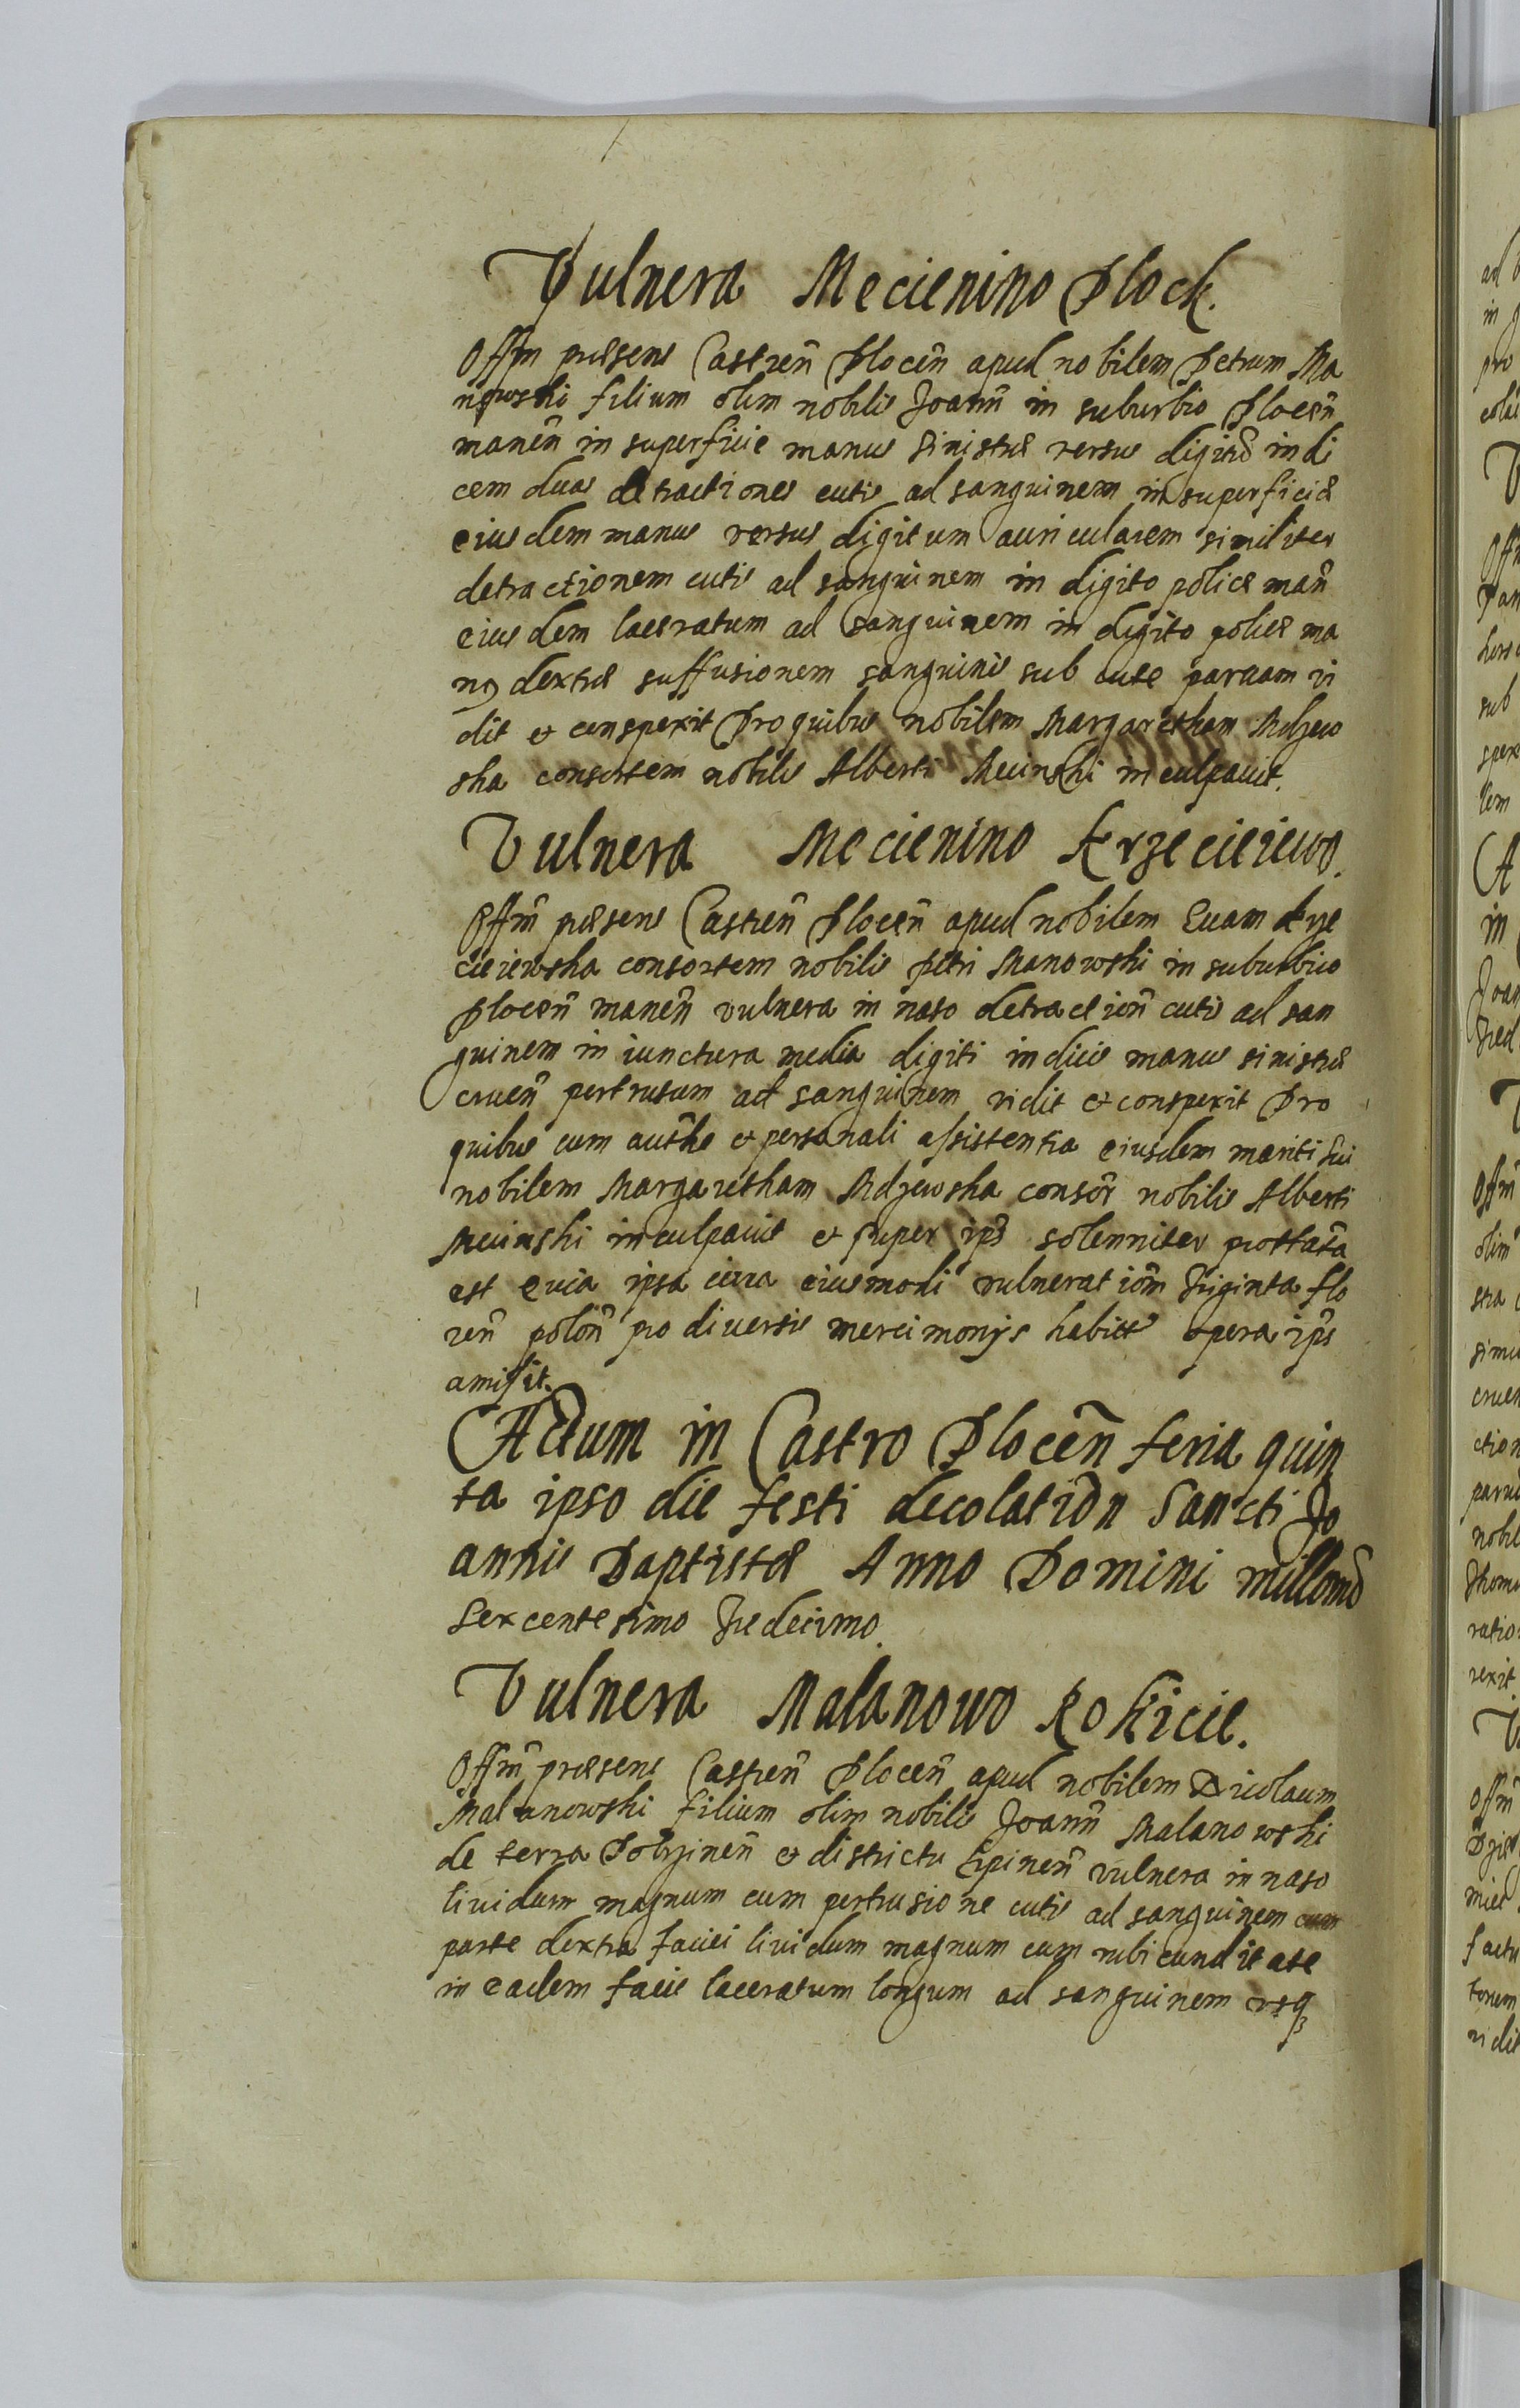 Vulnera Mecienino Plock.
Offm præsens Castren̄ Plocen̄ apud nobilem Petrum Ma
nowski filium olim nobilis Joann̄ in suburbio Plocen̄
manen̄ in superficie manus sinistræ versus digitū indi
cem duas detractiones cutis ad sanguinem in superficie
eiusdem manus versus digitum auricularem similiter
detractionem cutis ad sanguinem in digito police man̄
eiusdem laceratum ad sanguinem in digito police ma
nꝰ dextræ suffusionem sanguinis sub cute paruam vi
dit et conspexit Pro quibus nobilem Margaretham Mdzew
ska consortem nobilis Alberti Mecinski inculpauit.
Vulnera Mecienino Krzecieiewo.
Offm̄ præsens Castren̄ Plocen̄ apud nobilem Euam Krze
cieiewska consortem nobilis Petri Manowski in suburbio
Plocen̄ manen̄ vulnera in naso detraction̄ cutis ad san
guinem in iunctura media digiti indicis manus sinistræ
cruen̄ pertrusum ad sanguinem vidit et conspexit Pro
quibus cum auth̄e et personali assistentia eiusdem mariti sui
nobilem Margaretham Mdzewska consor̄ nobilis Alberti
Mecinski inculpauit et super ip̄s solenniter prottata
est Quia ipsa circa eiusmodi vulneration̄m triginta flo
ren̄ polon̄ pro diversis mercimonijs habit opera ip̄s
amisit.
Actum in Castro Plocen̄ feria quin
ta ipso die festi decolation̄ Sancti Jo
annis Baptistæ Anno Domini millm̄o
sexcentesimo tredecimo.
Vulnera Malanowo Rokicie.
Offm̄ præsens Castren̄ Plocen̄ apud nobilem Nicolaum
Malanowski filium olim nobilis Joann̄ Malanowski
de terra Dobrzinen̄ et districtu Lipinen̄ vulnera in naso
liuidum magnum cum pertrusione cutis ad sanguinem cum
parte dextra faciei liuidum magnum cum rubicunditate
in eadem facie laceratum longum ad sanguinem vsq̃